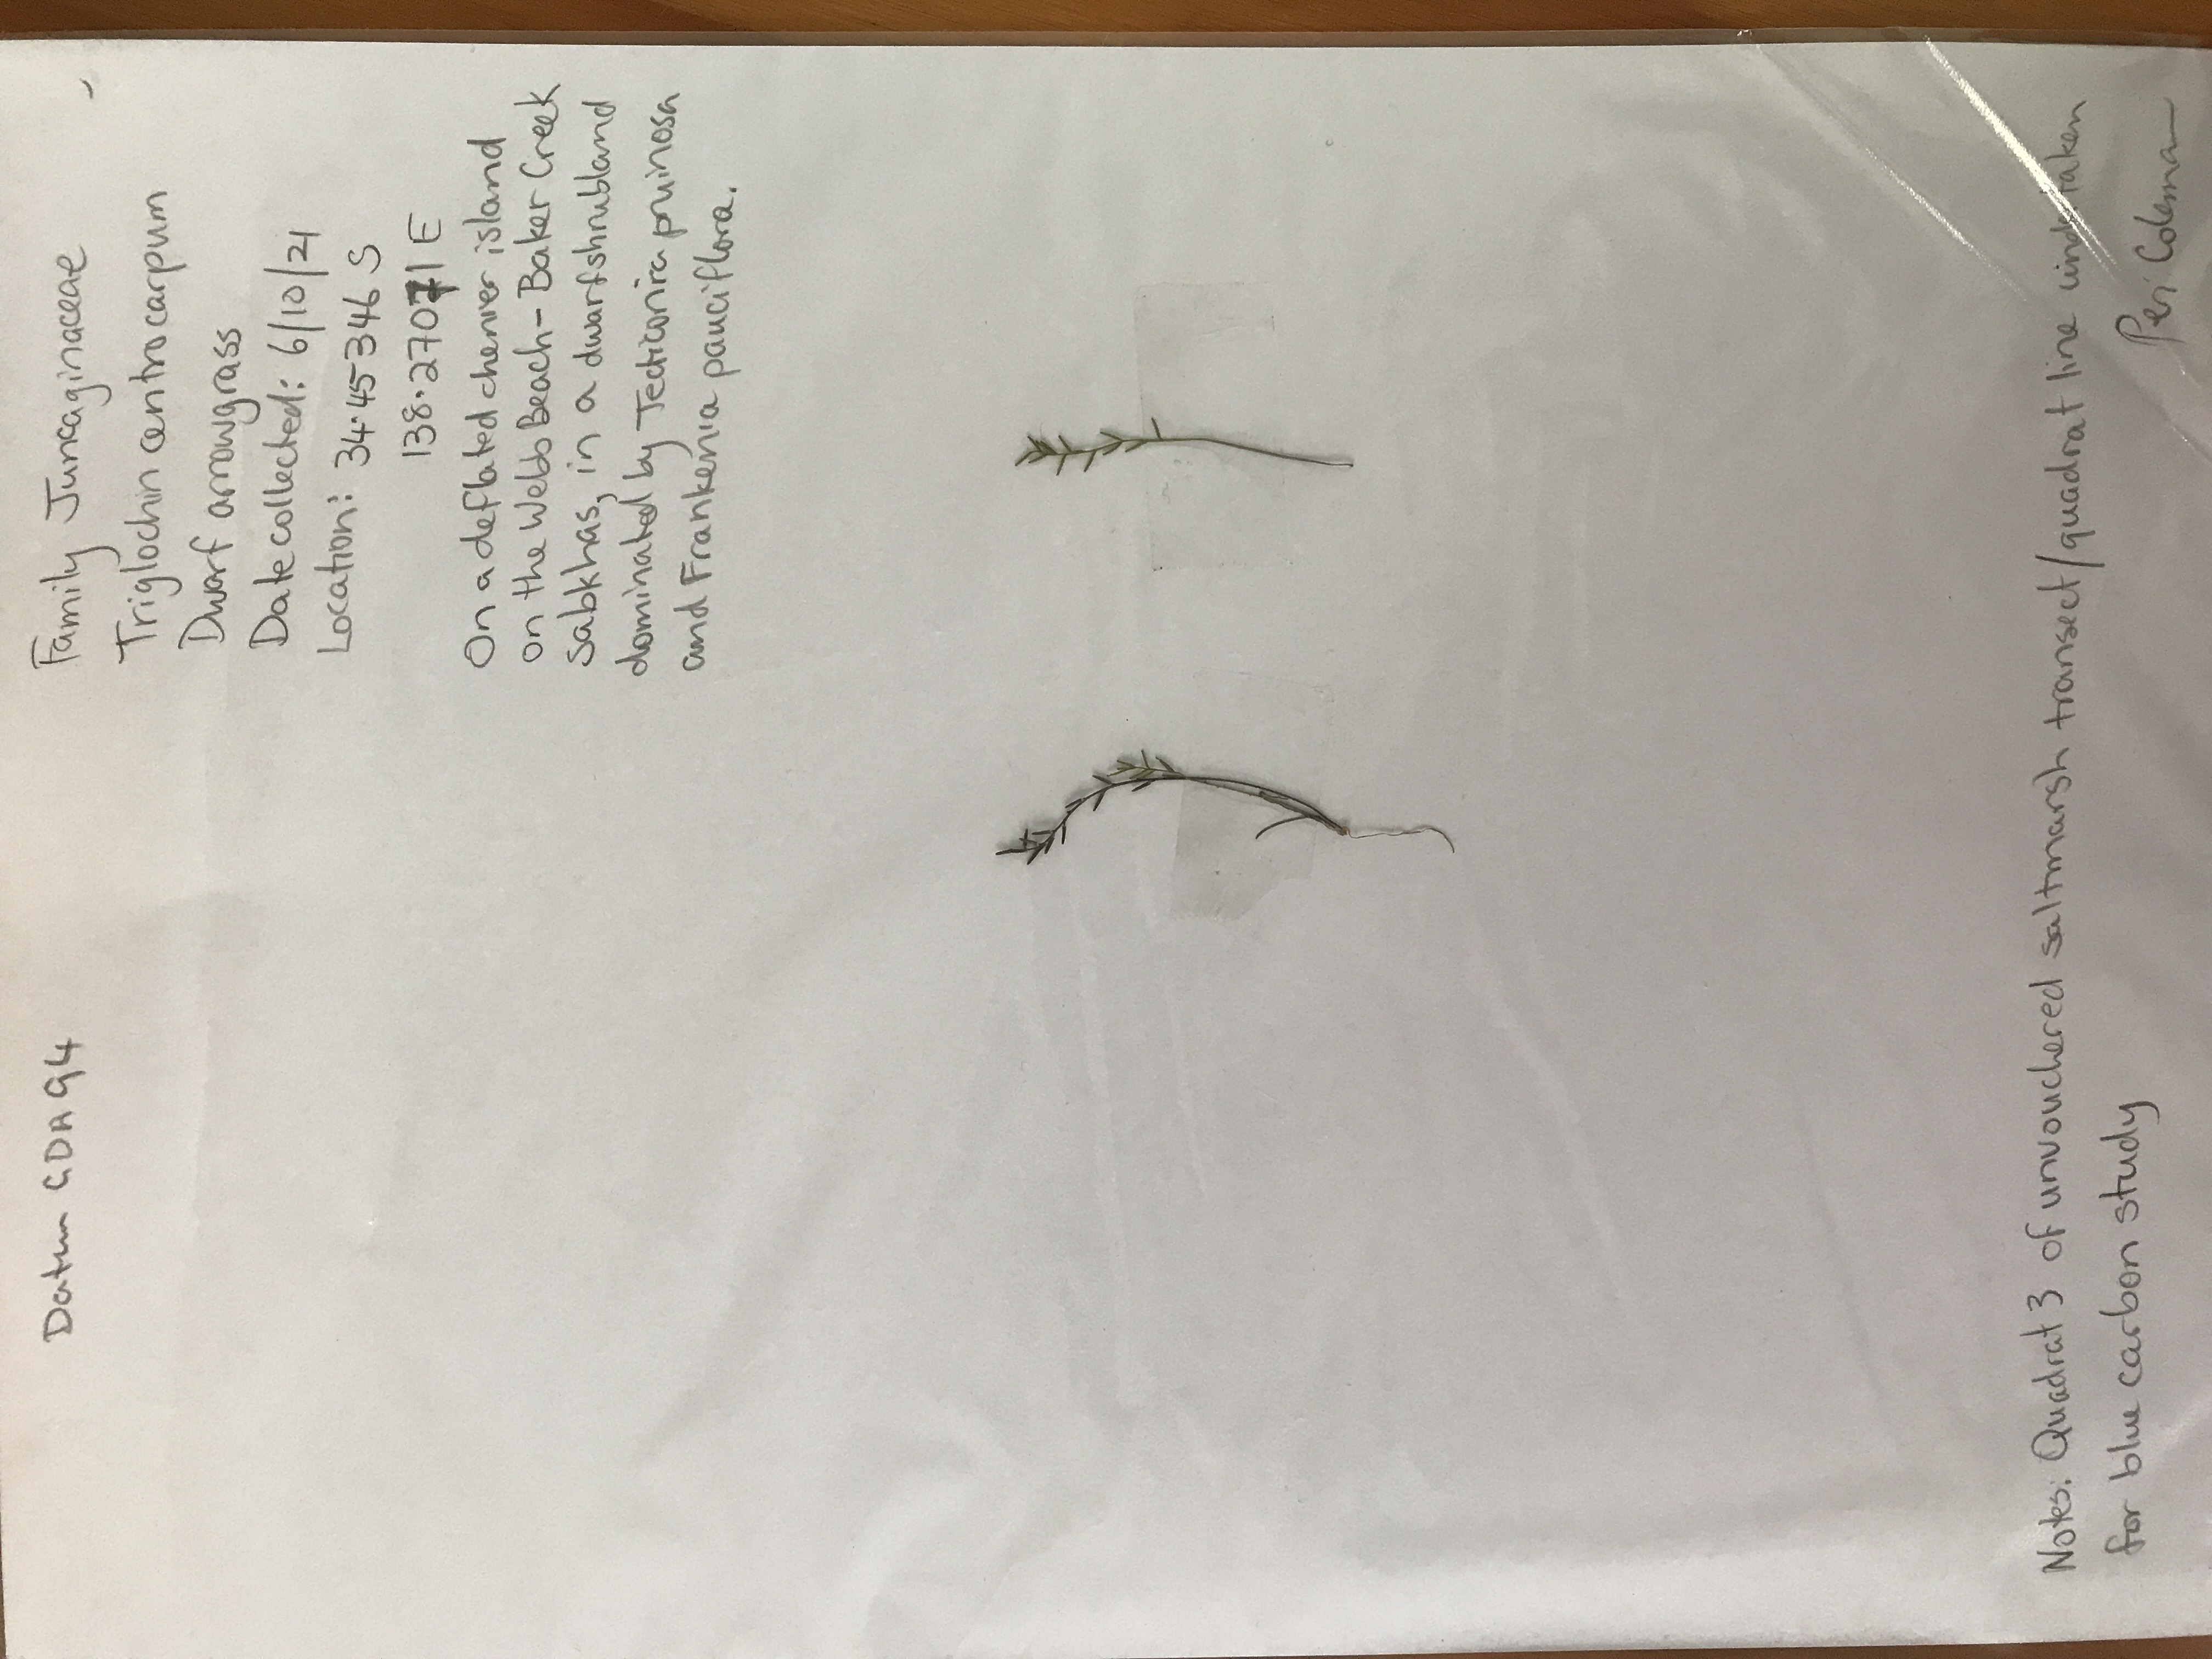 Datum GDA 94
Family Juncaginaceae
Triglochin centrocarpum
Dwarf arrowgrass
Date collected: 6/10/21
Location: 34.45346 S
138.27071 E
On a deflated chenier island
on the Webb Beach - Baker Creek
sabkhas, in a dwarf shrubland
dominated by Tecticornia pruinosa
and Frankenia pauciflora.
Notes: Quadrat 3 of unvouchered saltmarsh transect/quadrat line undertaken
for blue carbon study
Peri Coleman